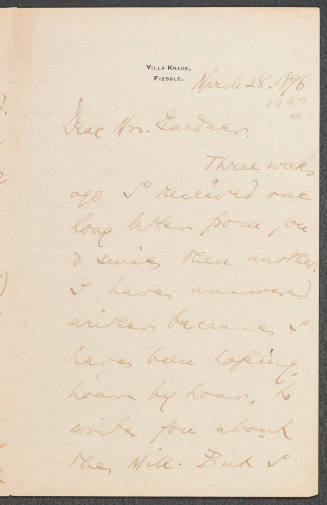 VILLA KRAUS,
FIESOLE.
March 28. 1896
1897
Dear Mrs. Gardner.
Three weeks
ago I received one
long letter from you
& since then another.
I have answered
neither because I
have been hoping,
hour by hour, to
write you about
the Mill. But I